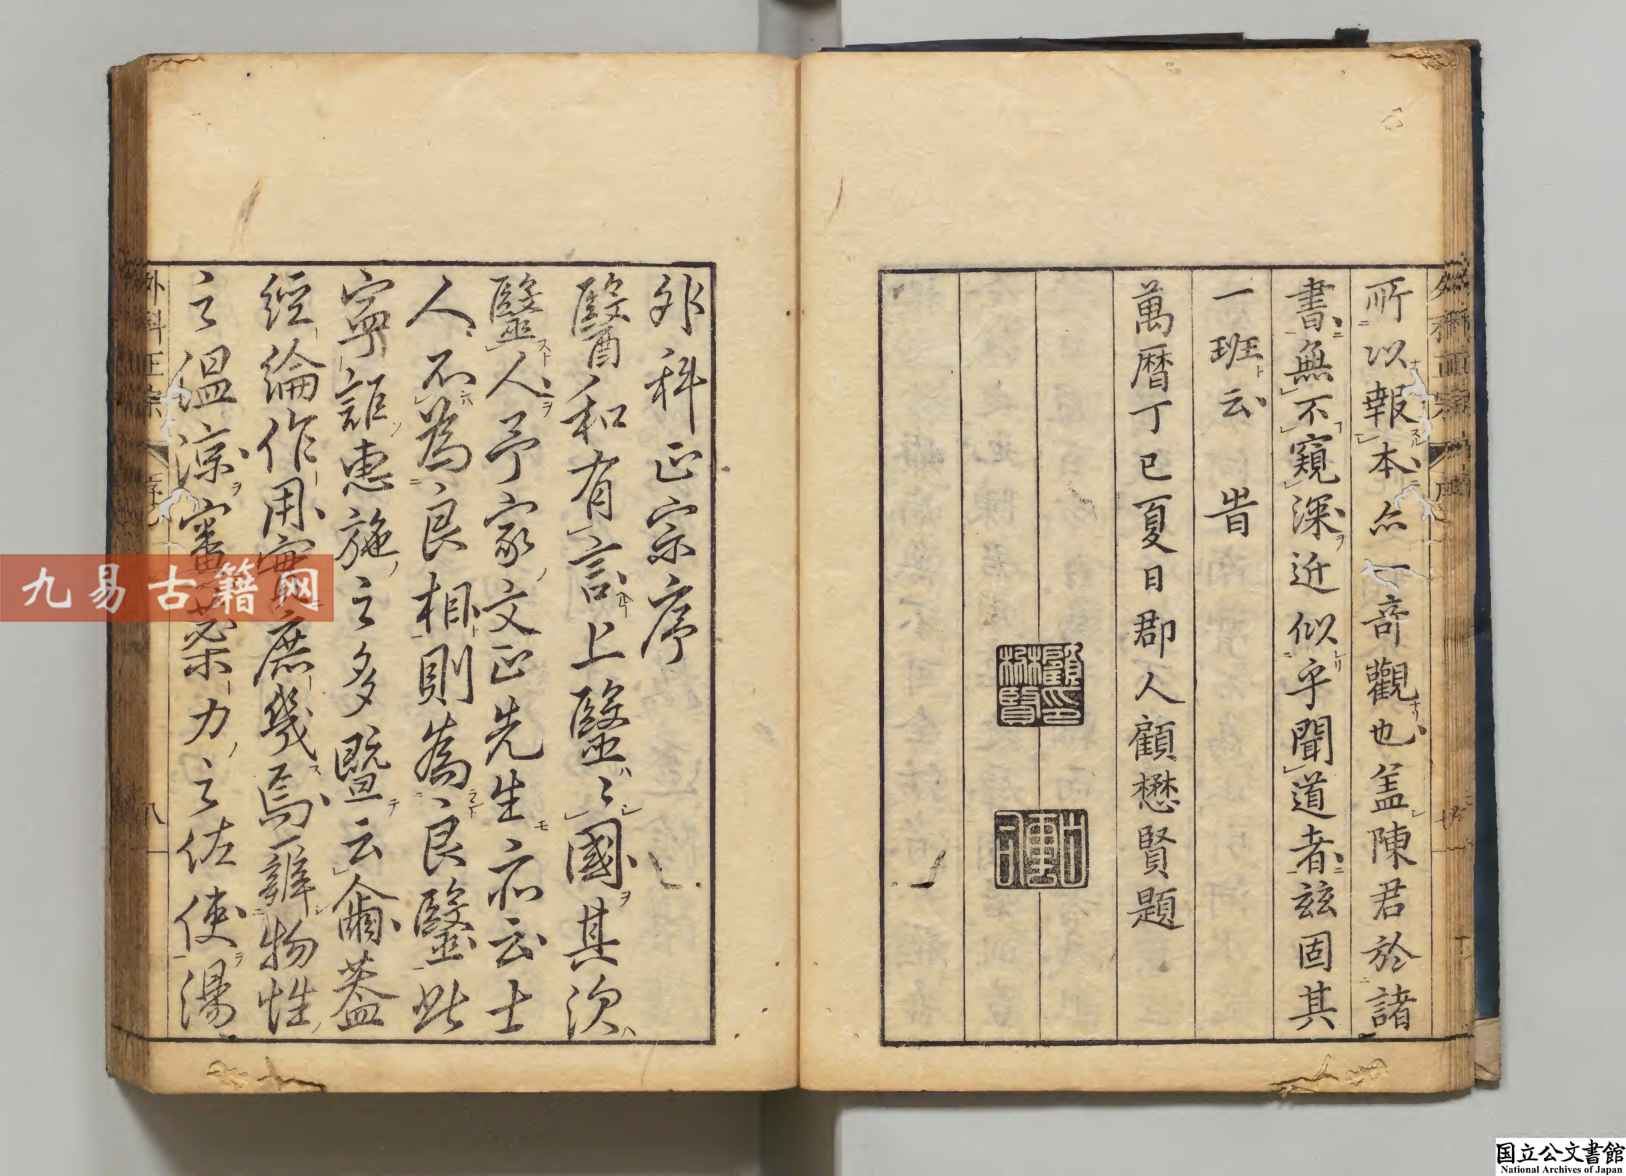 所以報本亦一竒觀也盖陳君於諸
書無不窺深近似乎聞道者兹固其
一班云 旹
萬曆丁巳夏日郡人顧懋賢題
外科正宗序
醫和有言上毉毉國其次
毉人予家文正先生亦云士
人不為良相則為良毉此
寧詎惠施之多暨云爾蓋
經綸作用實庶幾焉辨物性
之温凉審藥力之佐使湯
外科正宗
序
八
九易古籍网
国立公文書館
National Archives of Japan